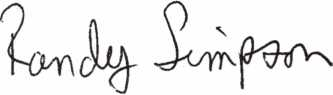 Randy Simpson